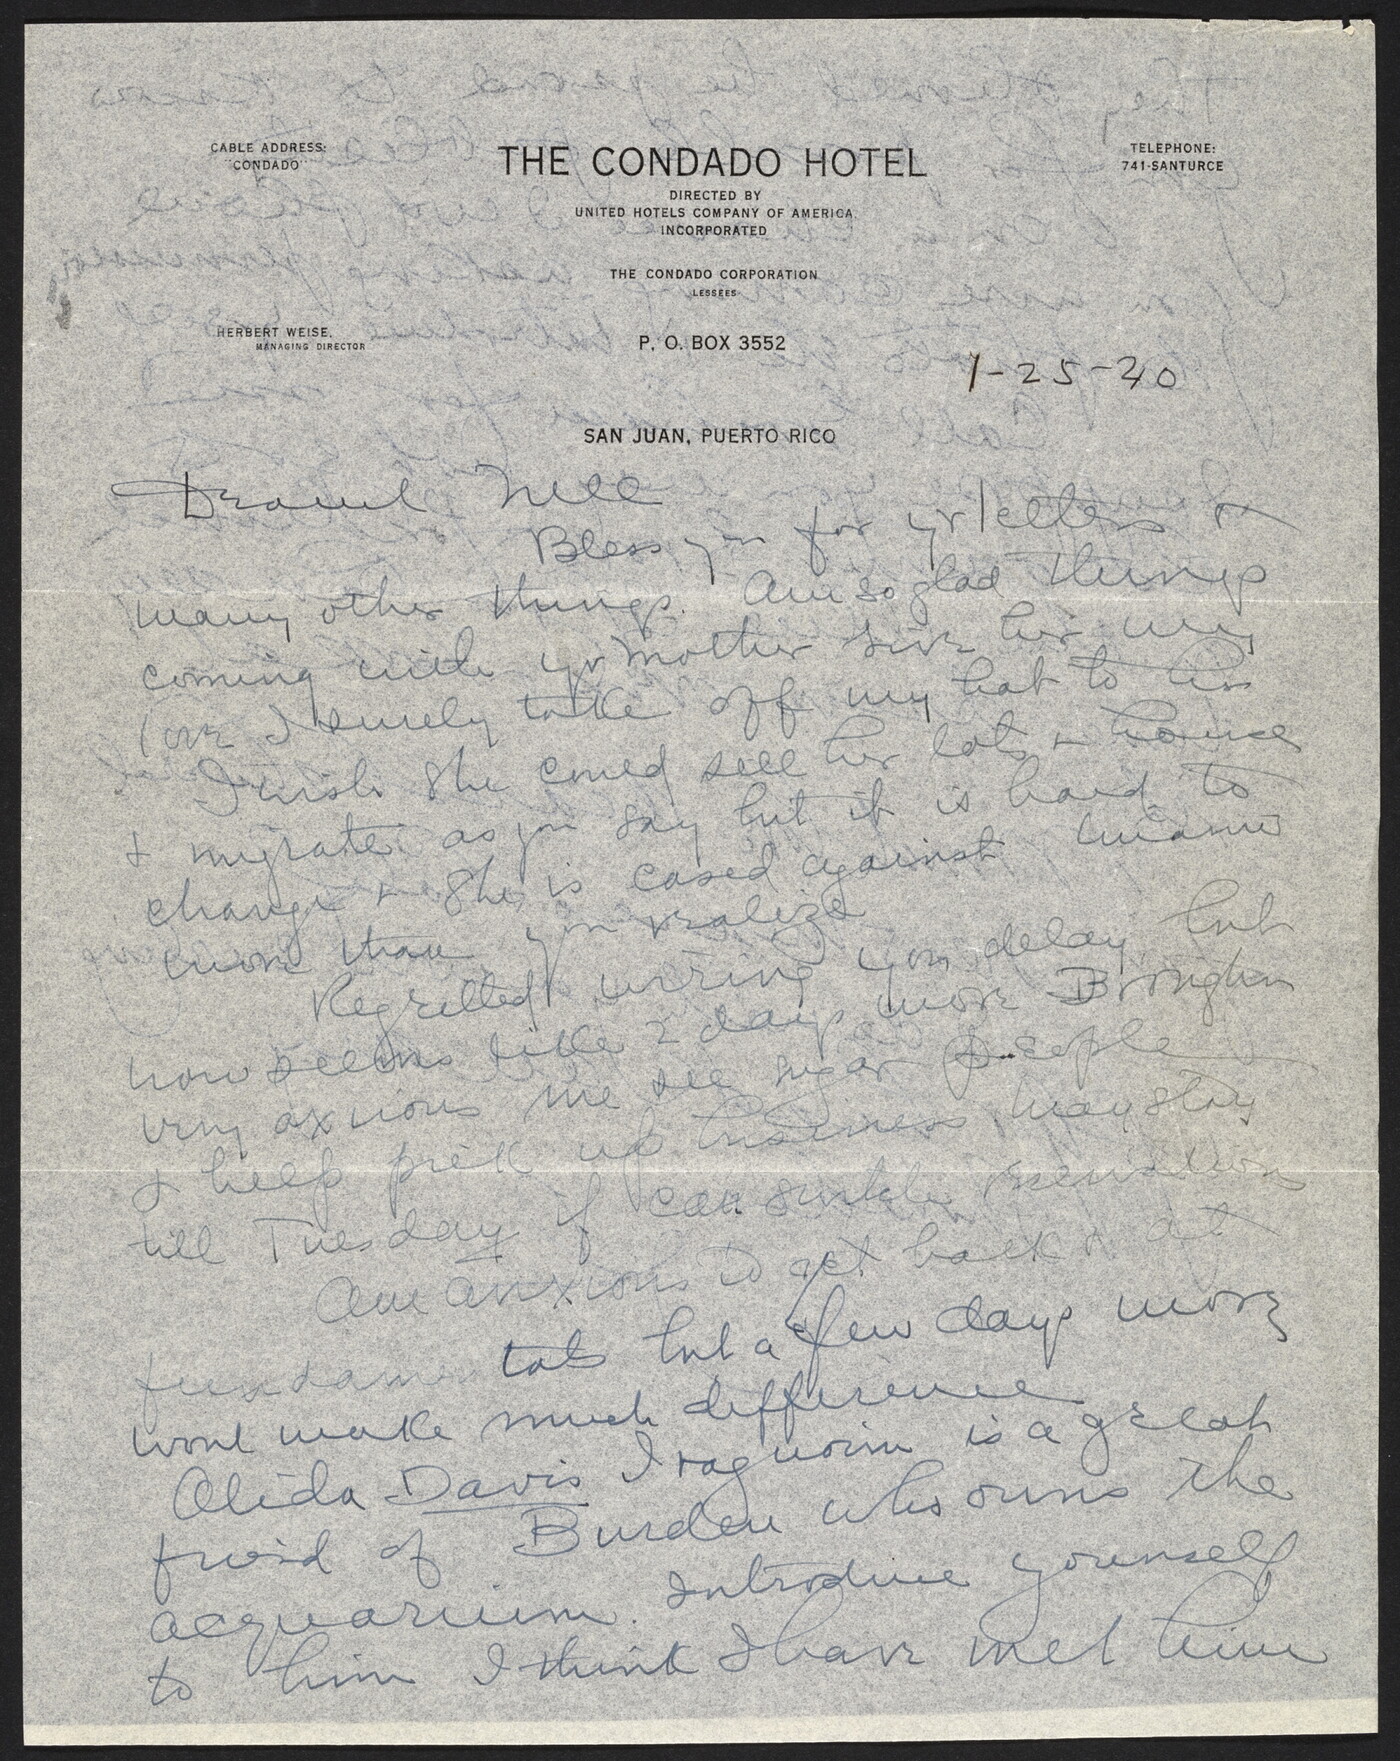 CABLE ADDRESS:
"CONDADO"
THE CONDADO HOTEL
TELEPHONE:
741-SANTURCE
DIRECTED BY
UNITED HOTELS COMPANY OF AMERICA
INCORPORATED
THE CONDADO CORPORATION
LESSEES
HERBERT WEISE,
MANAGING DIRECTOR
P. O. BOX 3552
1-25-40
SAN JUAN, PUERTO RICO
Nell
Bless you for yr letters &
many other things. Am so glad things
coming with yr mother Give her my
love I surely take off my hat to
I wish she could sell her lots & house
& migrate as you say but it is hard to
change & she is cased against Miami
more than you realize
Regretted wiring you delay but
now seems like 2 days more
very axxious me see sugar people
& help pick up business, may stay
till Tuesday if can
Am anxious to get back & at
fundamentals but a few days more
wont make much difference
Alida Davis is a great
freind of Burden who owns the
acquarium. Introduce yourself
to him I think I have met him